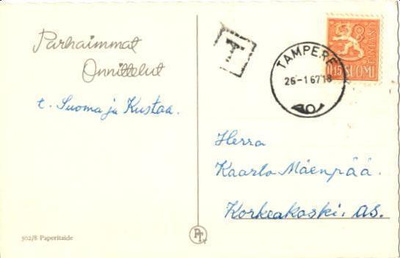 Parhaimmat
Onnittelut
t. Suoma ja Kustaa.
T
TAMPERE
26-1 67 18
10
0,15 SUOMI
Herra
Kaarlo Mäenpää.
Korkeakoski. as.
502/8 Paperitaide
PT